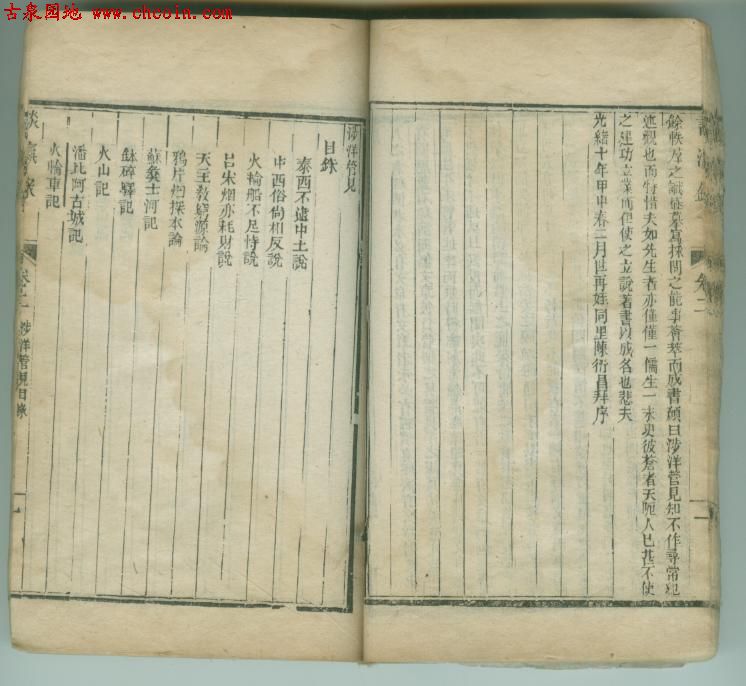 古泉园地 www.chcoin.com
卷二
餘帙厚之識盛摹寫採問之能事薈萃而成書顔曰涉洋管見知不作尋常紀
遊觀也而特惜夫如先生者亦僅僅一儒生一末吏彼蒼者天阨人已甚不使
之建功立業而但使之立說著書以成名也悲夫
光緒十年甲申春三月世再姪同里陳衍昌拜序
涉洋管見
目錄
泰西不遠中土說
中西俗尚相反說
火輪船不足恃說
呂宋烟亦耗財說
天主教窮源論
鴉片烟探本論
蘇彝士河記
鉢碎驛記
火山記
潘比阿古城記
火輪車記
談瀛錄 卷之一 涉洋管見目錄 一